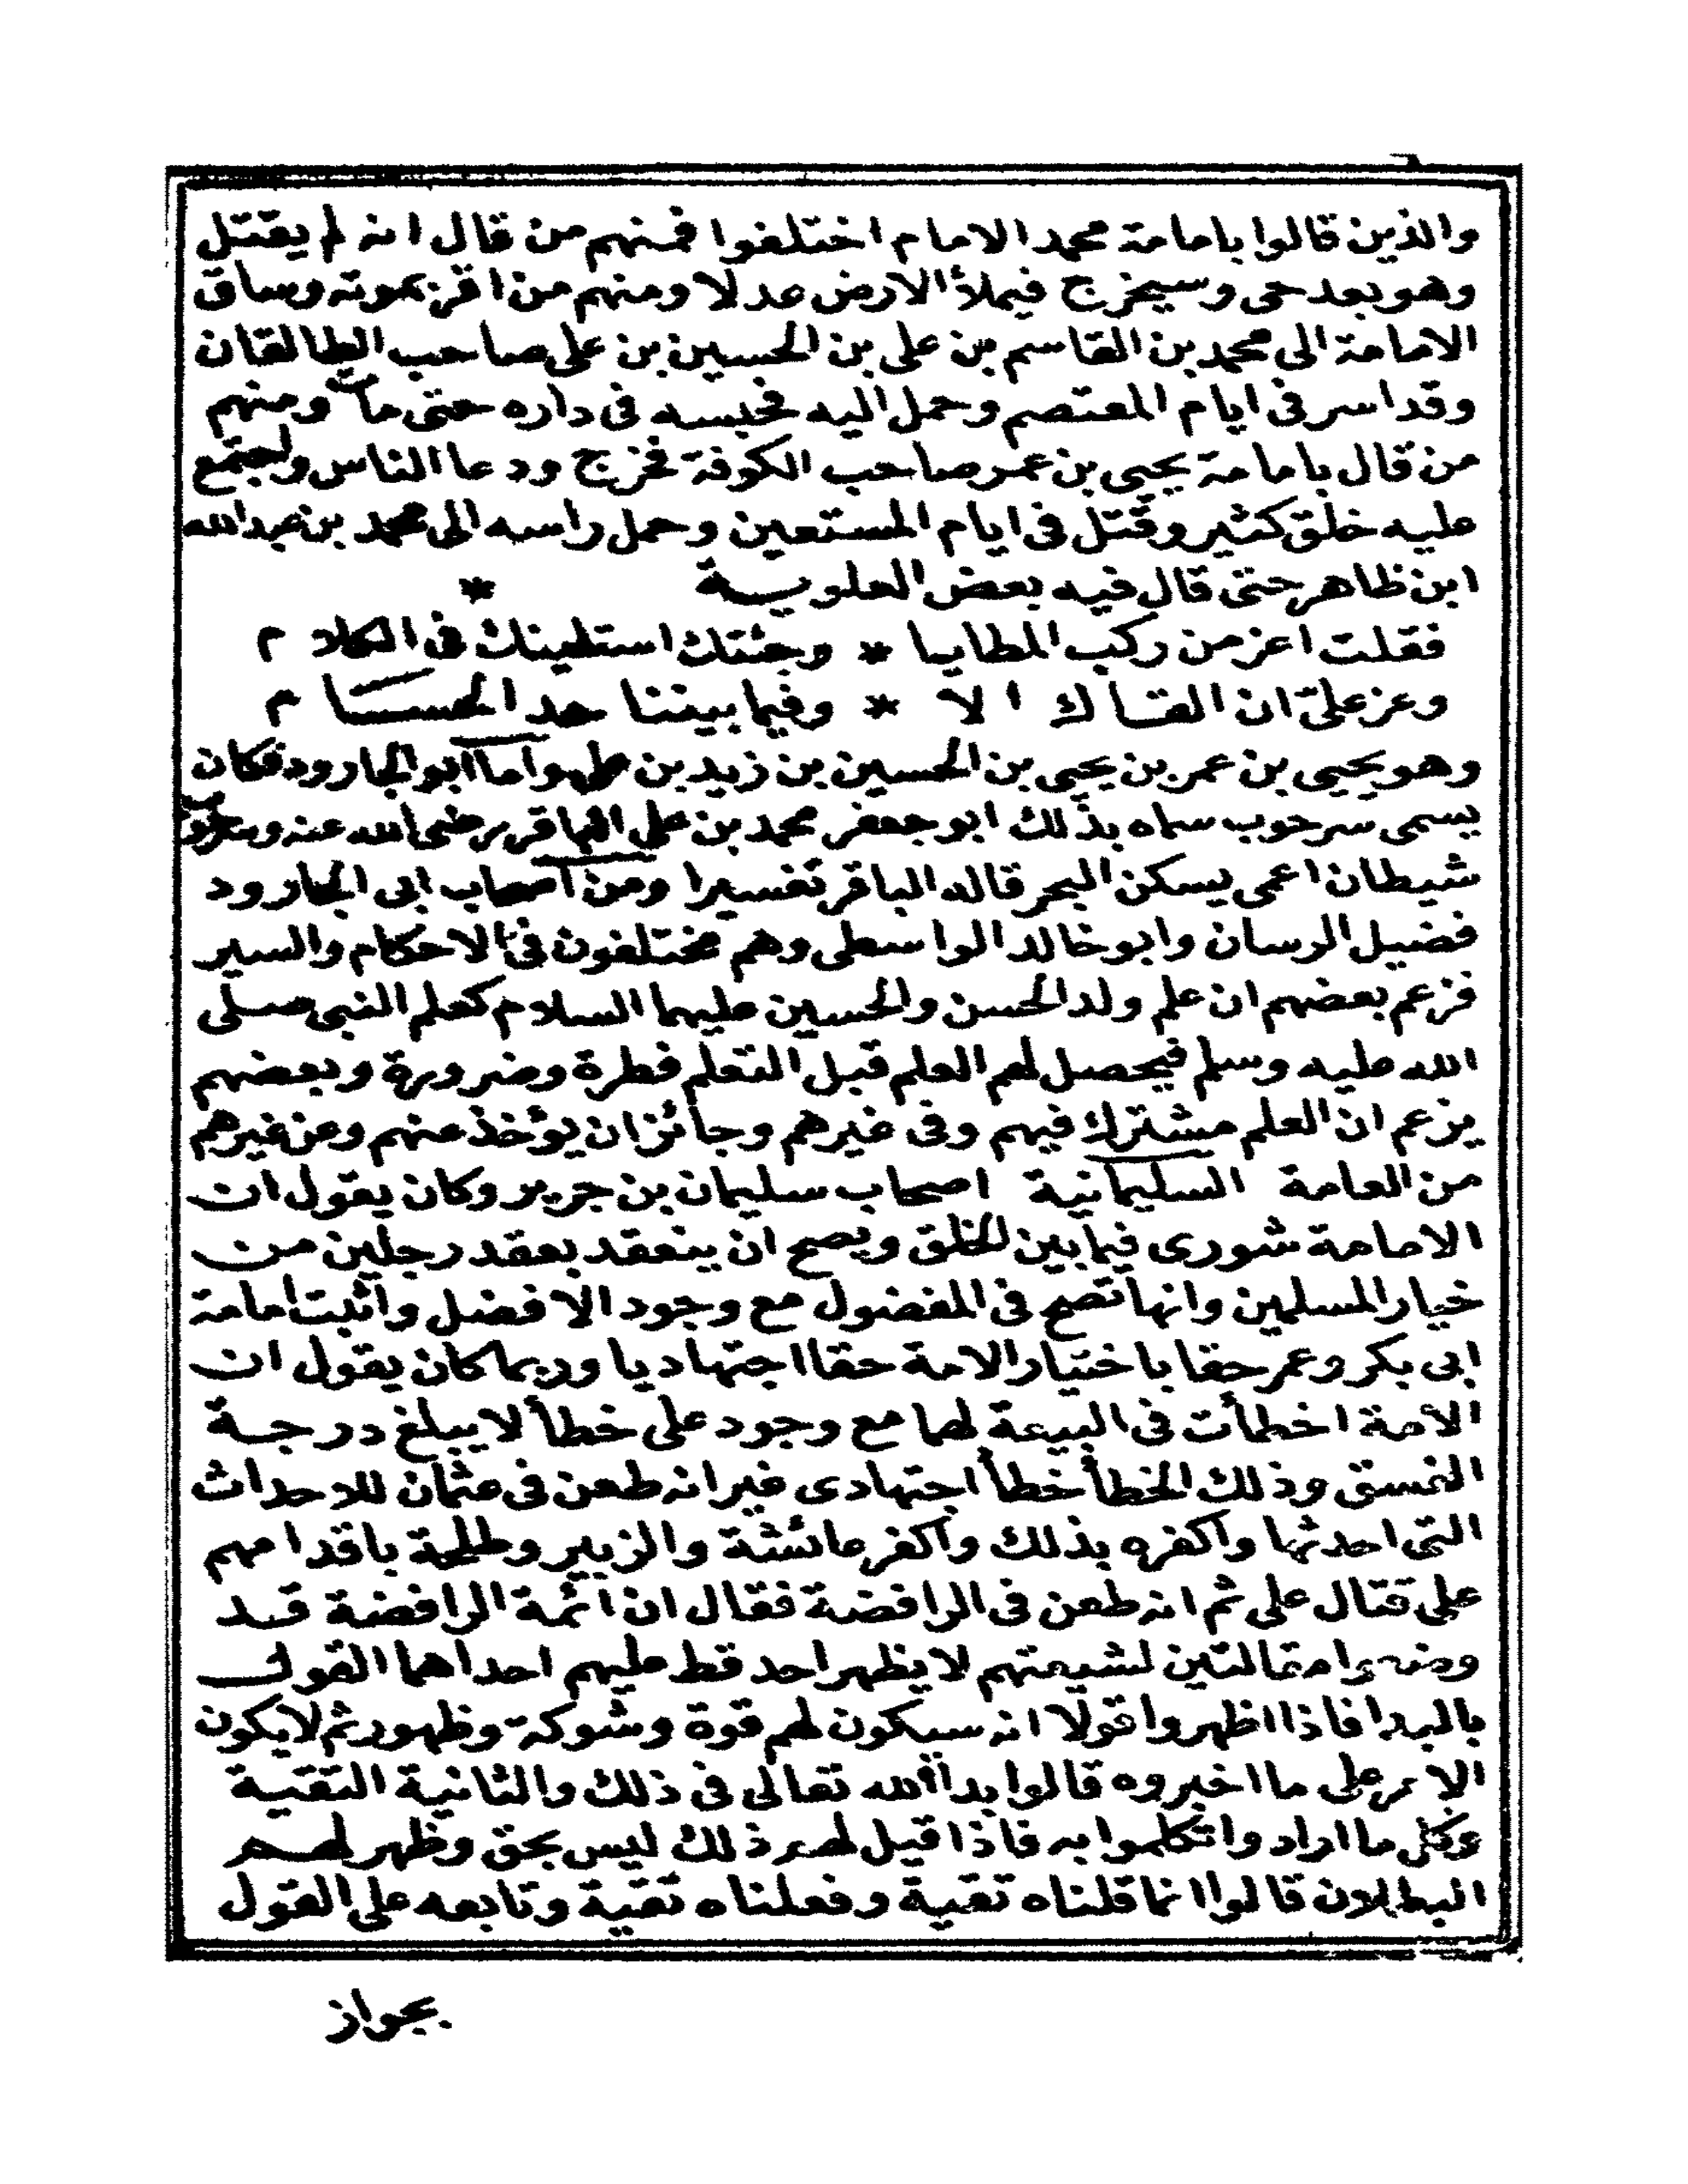 والذين قالوا بامامة محمد الامام اختلفوا فمنهم من قال انه لم يقتل
وهو بعد حى وسيخرج فيملأ الارض عدلا ومنهم من اقر بموته وساق
الامامة الى محمد بن القاسم بن على بن الحسين بن على صاحب الطالقان
وقد اسر فى ايام المعتصم وحمل اليه فحبسه فى داره حتى مات ومنهم
من قال بامامة يحيى بن عمر صاحب الكوفة فخرج ودعا الناس واجتمع
عليه خلق كثير وقتل فى ايام المستعين وحمل راسه الى محمد بن عبد الله
ابن ظاهر حتى قال فيه بعض العلوية *
فقلت اعز من ركب المطايا * وجئتك استلينك فى الكلام
وعز علىّ ان القاك الا * وفيما بيننا حد الحسام
وهو يحيى بن عمر بن يحيى بن الحسين بن زيد بن على واما ابو الجارود فكان
يسمى سرحوب سماه بذلك ابو جعفر محمد بن على الباقر رضى الله عنه وسرحوب
شيطان اعمى يسكن البحر قاله الباقر تفسيرا ومن اصحاب ابى الجارود
فضيل الرسان وابو خالد الواسطى وهم مختلفون فى الاحكام والسير
فزعم بعضهم ان علم ولد الحسن والحسين عليهما السلام كعلم النبى صلى
الله عليه وسلم فيحصل لهم العلم قبل التعلم فطرة وضرورة وبعضهم
يزعم ان العلم مشترك فيهم وفى غيرهم وجائز ان يؤخذ عنهم وعن غيرهم
من العامة السليمانية اصحاب سليمان بن جرير وكان يقول ان
الامامة شورى فيما بين الخلق ويصح ان ينعقد بعقد رجلين من
خيار المسلمين وانها تصح فى المفضول مع وجود الافضل واثبت امامة
ابى بكر وعمر حقا باختيار الامة حقا اجتهاديا وربما كان يقول ان
الامة اخطأت فى البيعة لهما مع وجود على خطأ لا يبلغ درجة
الفسق وذلك الخطأ خطأ اجتهادى غير انه طعن فى عثمان للاحداث
التى احدثها واكفره بذلك واكفر عائشة والزبير وطلحة باقدامهم
على قتال على ثم انه طعن فى الرافضة فقال ان ائمة الرافضة قد
وضعوا مقالتين لشيعتهم لا يظهر احد قط عليهم احداهما القول
بالبدا فاذا اظهروا قولا انه سيكون لهم قوة وشوكة وظهور ثم لا يكون
الامر على ما اخبروه قالوا بدا لله تعالى فى ذلك والثانية التقية
وكل ما اراد واتكلموا به فاذا قيل لهم ذلك ليس بحق وظهر لهم
البطلان قالوا انما قلناه تقية وفعلناه تقية وتابعه على القول
بجواز